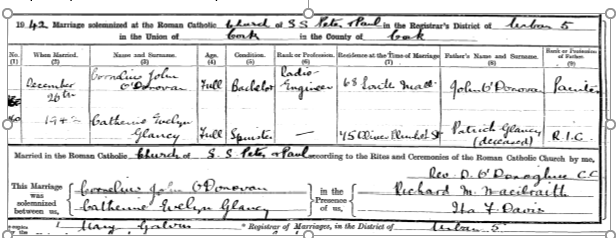 1942. Marriage solemnized at the Roman Catholic Church of S.S Peter & Paul in the Registrar's District of Urban 5
in the Union of Cork in the County of Cork
No. When Married. Name and Surname. Age. Condition. Rank or Profession. Residence at the Time of Marriage Father's Name and Surname. Rank or Profession of Father.
(1) (2) (3) (4) (5) (6) (7) (8) (9)
December 26th Cornelius John O'Donovan Full Bachelor Radio Engineer 68 South Mall John O'Donovan Painter
1942 Catherine Evelyn Glancy Full Spinster — 45 Oliver Plunket St Patrick Glancy (deceased) R.I.C.
Married in the Roman Catholic Church of S.S Peter & Paul according to the Rites and Ceremonies of the Roman Catholic Church by me,
Rev. D. O'Donoghue C.C
This Marriage was solemnized between us, Cornelius John O'Donovan Catherine Evelyn Glancy in the Presence of us, Richard M. Ida F Davis
Mary Galvin * Registrar of Marriages, in the District of Urban 5